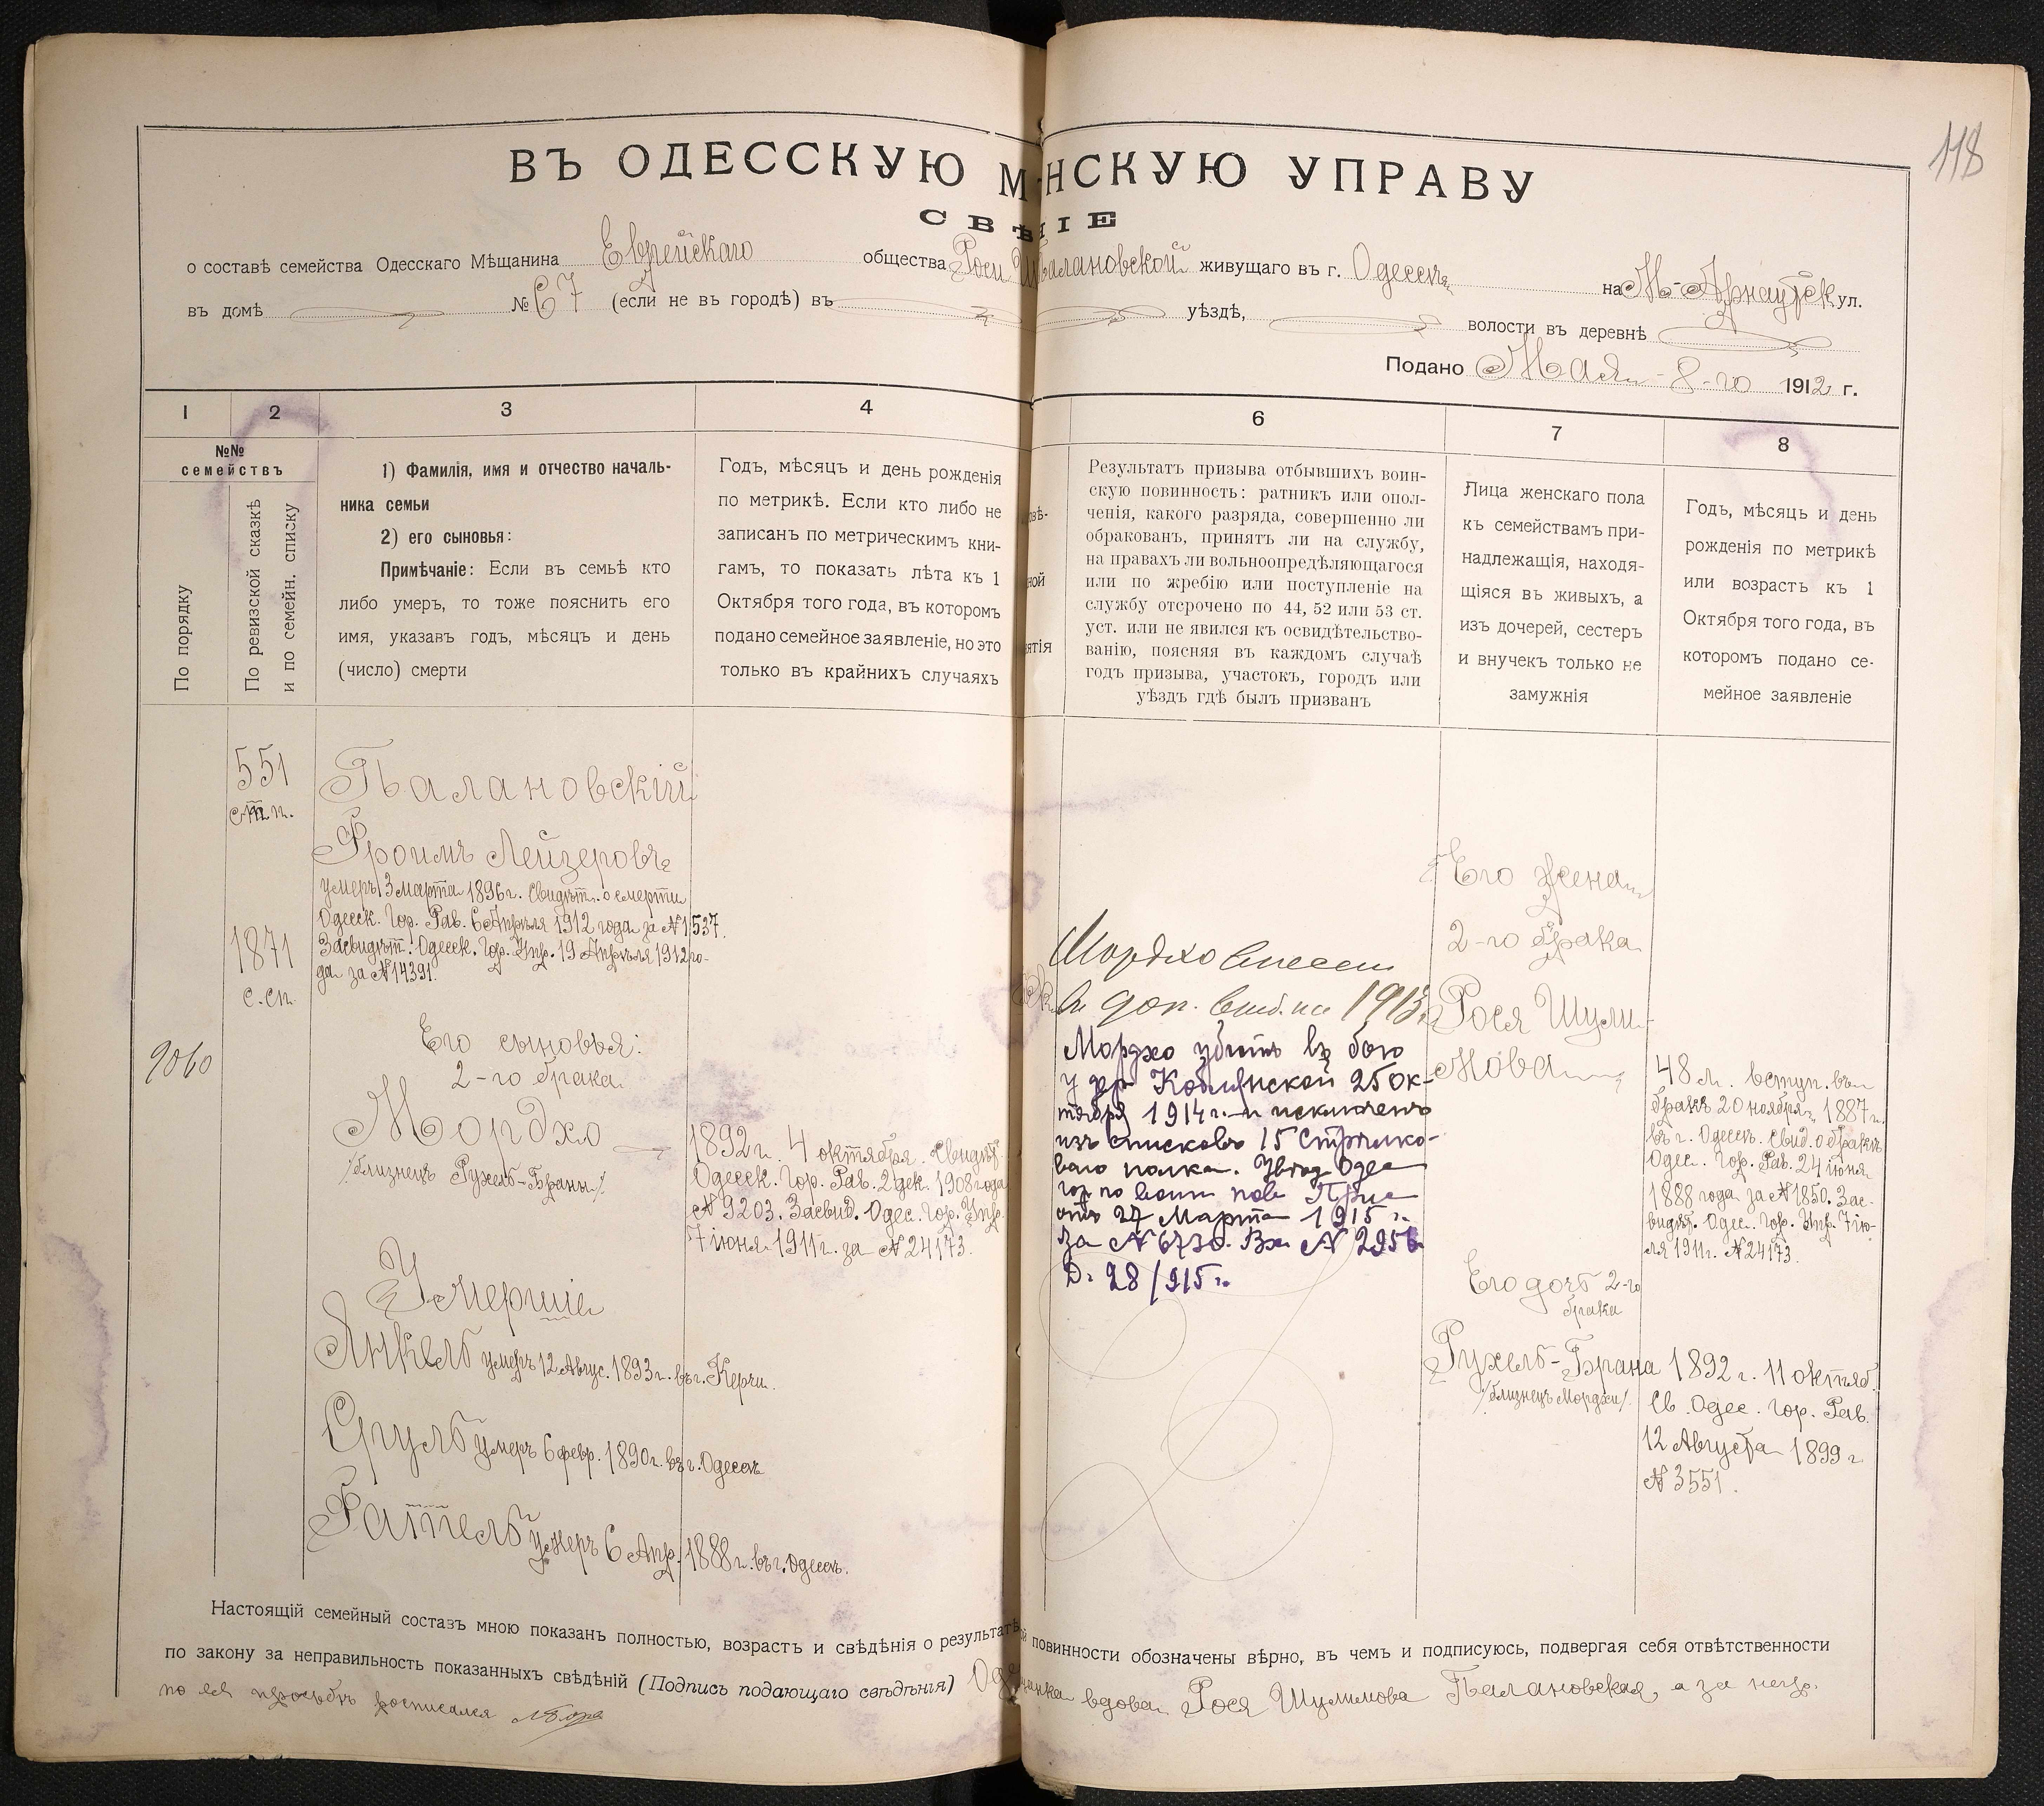 118
ВЪ ОДЕССКУЮ М НСКУЮ УПРАВУ
СВѢ НІЕ
о составѣ семейства Одесскаго Мѣщанина Еврейскаго общества Роси Балановской живущаго въ г. Одессѣ на М-Арнаутск ул.
въ домѣ № 67 (если не въ городѣ) въ уѣздѣ, волости въ деревнѣ
Подано Мая 8-го 1912 г.
1 2 3 4 6 7 8
№№
семействъ
По порядку
По ревизской сказкѣ
и по семейн. списку
1) Фамилія, имя и отчество началь-
ника семьи
2) его сыновья:
Примѣчаніе: Если въ семьѣ кто
либо умеръ, то тоже пояснить его
имя, указавъ годъ, мѣсяцъ и день
(число) смерти
Годъ, мѣсяцъ и день рожденія
по метрикѣ. Если кто либо не
записанъ по метрическимъ кни-
гамъ, то показать лѣта къ 1
Октября того года, въ которомъ
подано семейное заявленіе, но это
только въ крайнихъ случаяхъ
Результатъ призыва отбывшихъ воин-
скую повинность: ратникъ или опол-
ченія, какого разряда, совершенно ли
обракованъ, принятъ ли на службу,
на правахъ ли вольноопредѣляющагося
или по жребію или поступленіе на
службу отсрочено по 44, 52 или 53 ст.
уст. или не явился къ освидѣтельство-
ванію, поясняя въ каждомъ случаѣ
годъ призыва, участокъ, городъ или
уѣздъ гдѣ былъ призванъ
Лица женскаго пола
къ семействамъ при-
надлежащія, находя-
щіяся въ живыхъ, а
изъ дочерей, сестеръ
и внучекъ только не
замужнія
Годъ, мѣсяцъ и день
рожденія по метрикѣ
или возрастъ къ 1
Октября того года, въ
которомъ подано се-
мейное заявленіе
9060
551
1871
с.сп.
Балановскій
Фроимъ Лейзеровъ
умеръ 3 марта 1896 г. Свидѣт. о смерти
Одесск. Гор. Рав. 6 Апрѣля 1912 года за № 1537.
Засвидѣт. Одесск. Гор. Упр. 19 Апрѣля 1912 го-
да за № 14391.
Его сыновья:
2-го брака
Мордхо
/близнецъ Рухель-Браны/
1892 г. 4 октября. Свидѣт.
Одесск. Гор. Рав. 2 дек. 1908 года
№ 9203. Засвид. Одес. Гор. Упр.
7 іюня 1911 г. за № 24173.
Умершіе
Янкель умеръ 12 Авгус. 1893 г. въ г. Керчи.
Сруль умеръ 6 февр. 1890 г. въ г. Одессѣ
Фатель умеръ 6 Апр. 1888 г. въ г. Одессѣ.
Мордхо внесен
в доп. 1913
Мордхо убитъ въ бою
у дер. 25 ок-
тября 1914 г. и исключенъ
изъ списковъ 15 Стрѣлко-
ваго полка. Одес
гор по воин пов Прис
отъ 27 Марта 1915 г.
за № 6730. Вх. № 2956
Д. 28/915 г.
Его жена
2-го брака
Рося Шули-
мова
48 л. вступ. въ
бракъ 20 ноября 1887 г.
въ г. Одессѣ. Свид. о бракѣ
Одес. Гор. Рав. 24 іюня
1888 года за № 1850. Зас-
видѣт. Одес. Гор. Упр. 7 ію-
ля 1911 г. № 24173.
Его дочь 2-го
брака
Рухель-Брана
/близнецъ Мордхи/
1892 г. 11 октяб.
Св. Одес. Гор. Рав.
12 Августа 1899 г
№ 3551.
Настоящій семейный составъ мною показанъ полностью, возрастъ и свѣдѣнія о результатѣ повинности обозначены вѣрно, въ чемъ и подписуюсь, подвергая себя отвѣтственности
по закону за неправильность показанныхъ свѣдѣній (Подпись подающаго свѣдѣнія) вдова Рося Шулимова Балановская, а за негр.
по ея просьбѣ росписался